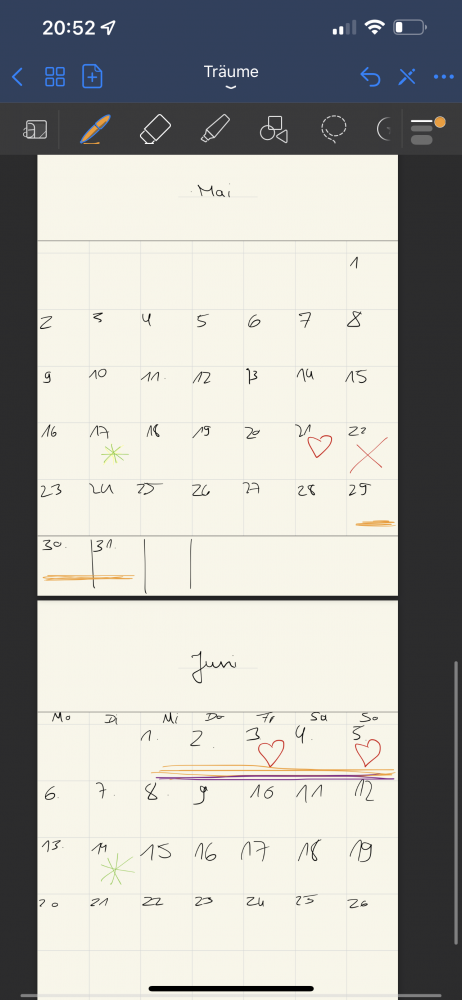 20:52
Träume
Mai
1
2 3 4 5 6 7 8
9 10 11. 12 13 14 15
16 17 18 19 20 21 22
23 24 25 26 27 28 29
30. 31.
Juni
Mo Di Mi Do Fr Sa So
1. 2. 3 4. 5.
6. 7. 8. 9 10 11 12
13. 14 15 16 17 18 19
20 21 22 23 24 25 26